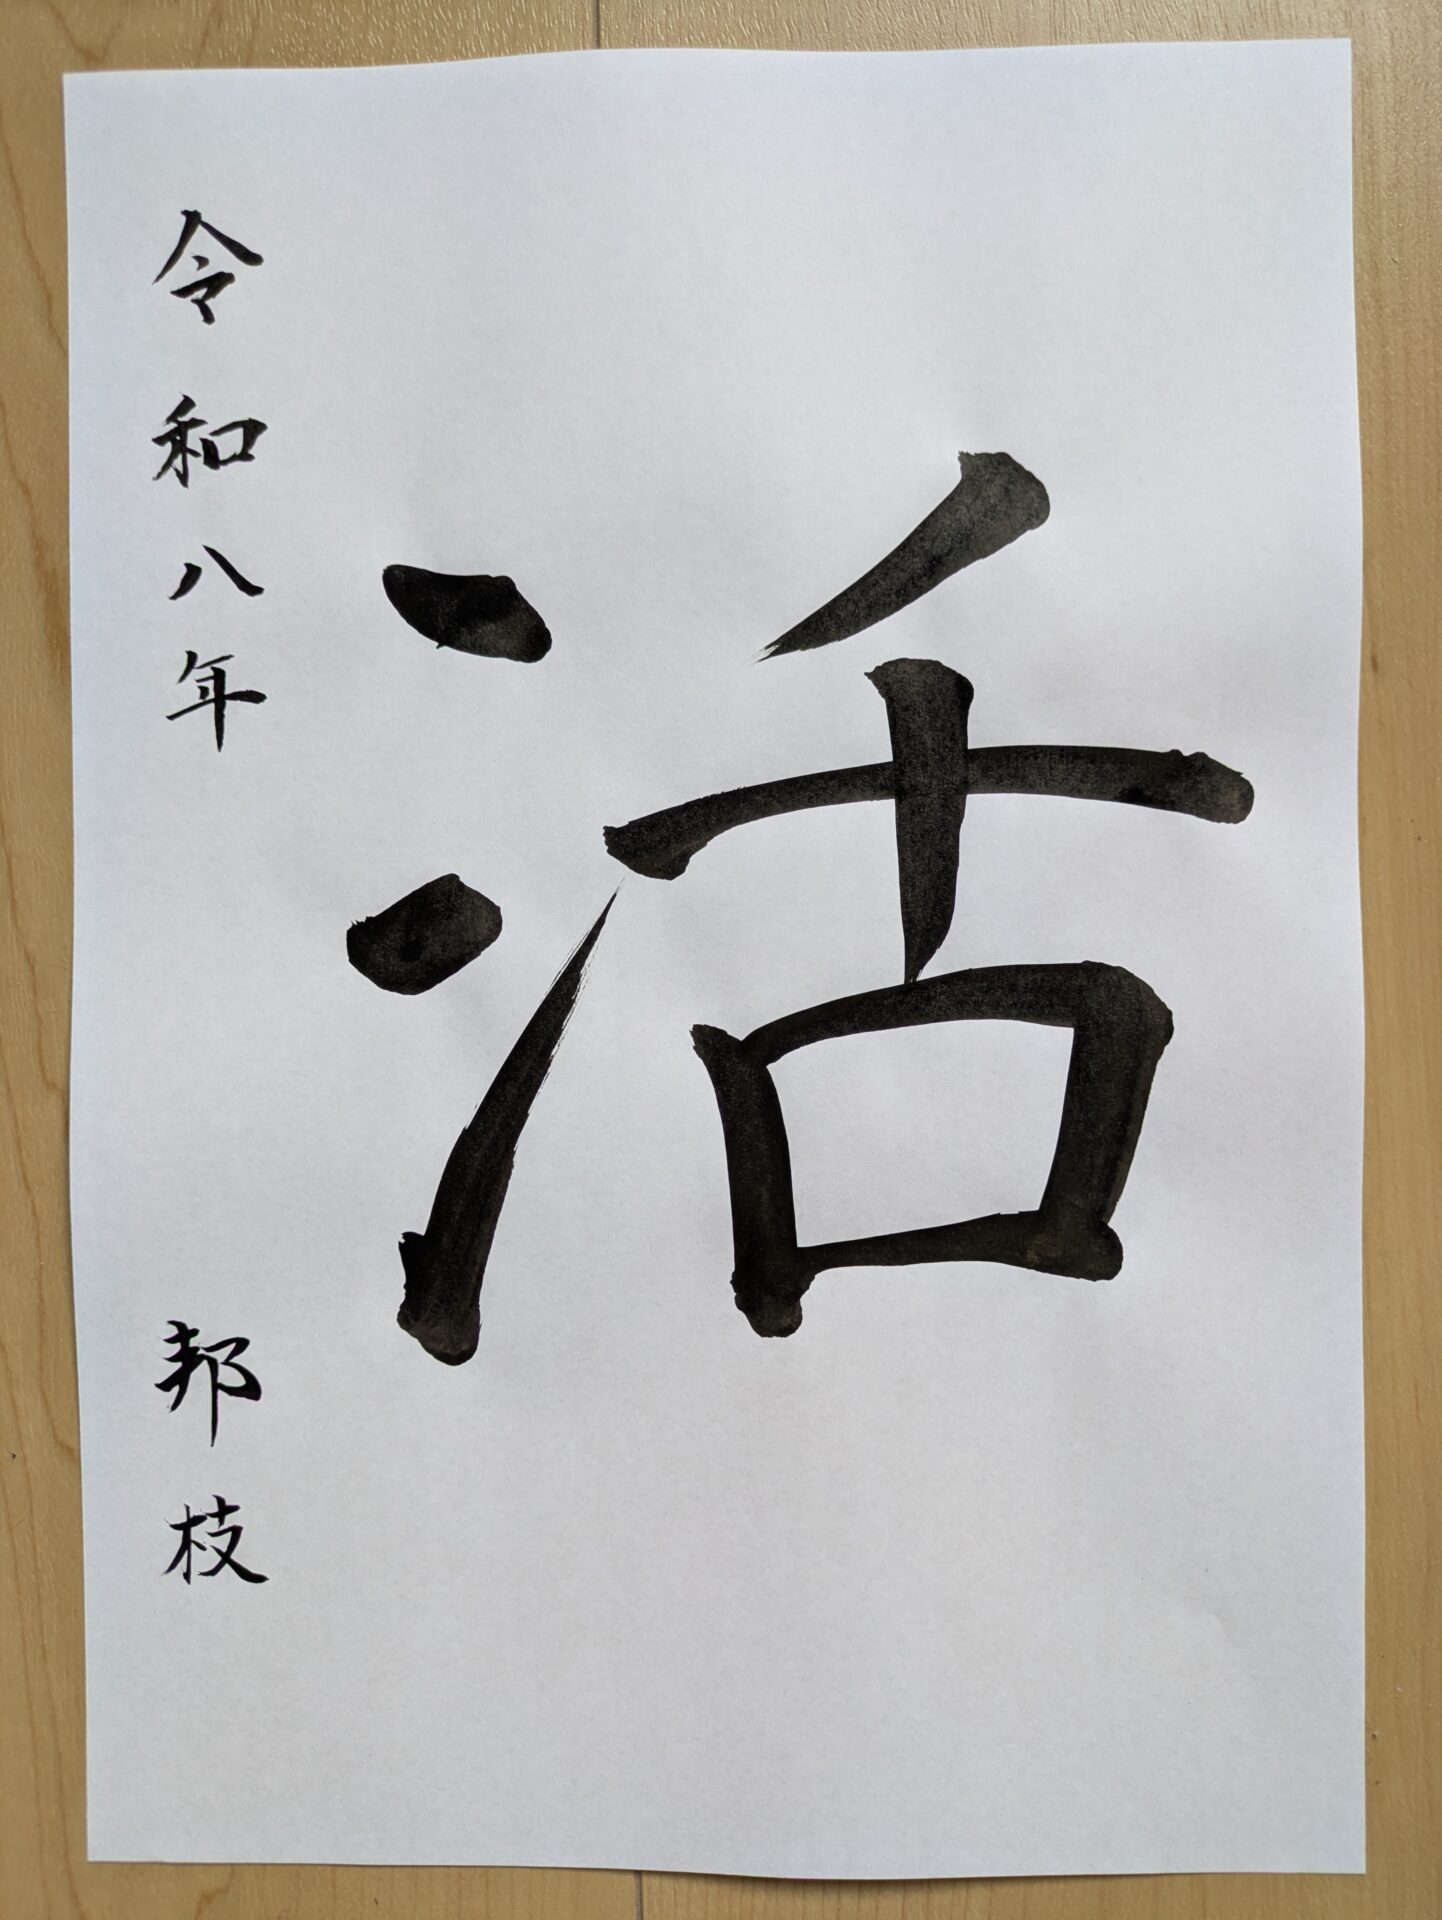 活
令和八年 邦枝